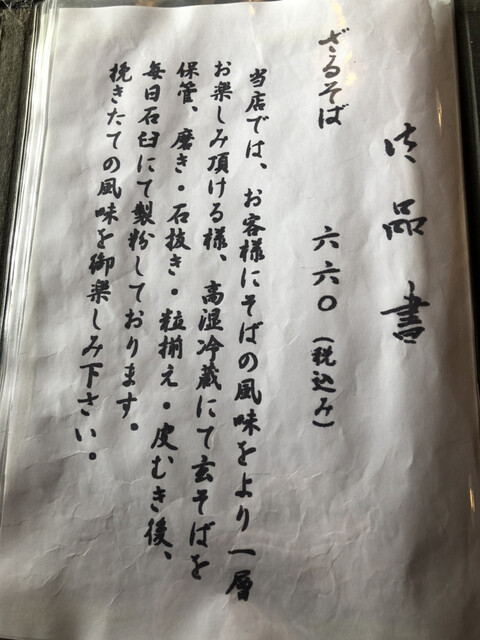 御品書
ざるそば 六六〇（税込み）
当店では、お客様にそばの風味をより一層
お楽しみ頂ける様、高湿冷蔵にて玄そばを
保管、磨き・石抜き・粒揃え・皮むき後、
毎日石臼にて製粉しております。
挽きたての風味を御楽しみ下さい。